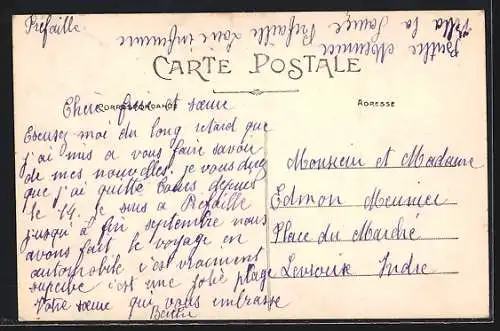 Préfaille
Berthe Meunier Préfaille Loire inférieure
Villa la
CARTE POSTALE
CORRESPONDANCE
ADRESSE
Chère frère et sœur
Excusez moi du long retard que
j'ai mis a vous faire savoir
de mes nouvelles. je vous dirai
que j'ai quitté Tours depuis
le 14. Je suis a Préfaille
jusqu'à fin septembre nous
avons fait le voyage en
automobile c'est vraiment
superbe c'est une jolie plage
Votre sœur qui vous embrasse
Berthe
Monsieur et Madame
Edmon Meunier
Place du Marché
Levroux Indre